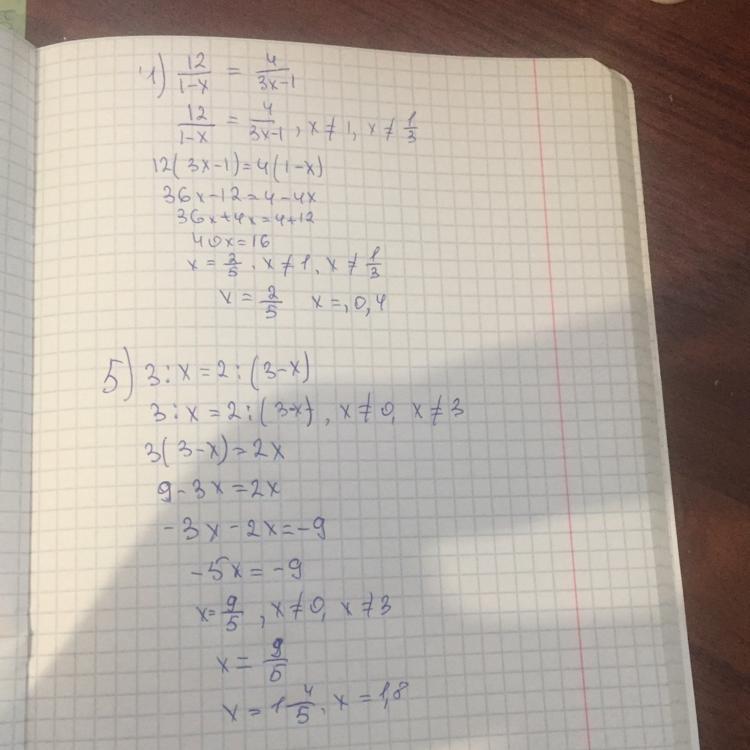 4) 12/(1-x) = 4/(3x-1)
12/(1-x) = 4/(3x-1), x≠1, x≠1/3
12(3x-1)=4(1-x)
36x-12=4-4x
36x+4x=4+12
40x=16
x=2/5, x≠1, x≠1/3
x=2/5 x=,0,4
5) 3:x=2:(3-x)
3:x=2:(3-x), x≠0, x≠3
3(3-x)=2x
9-3x=2x
-3x-2x=-9
-5x=-9
x=9/5, x≠0, x≠3
x=9/5
x=1 4/5, x=1,8